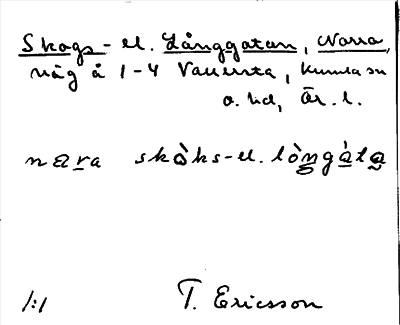 Skogs- el. Långgatan, Norra,
väg å 1-4 Vallersta, Kumla sn
o. hd, Är. l.
nara skòks-el. lòngàta
1:1 T. Ericsson